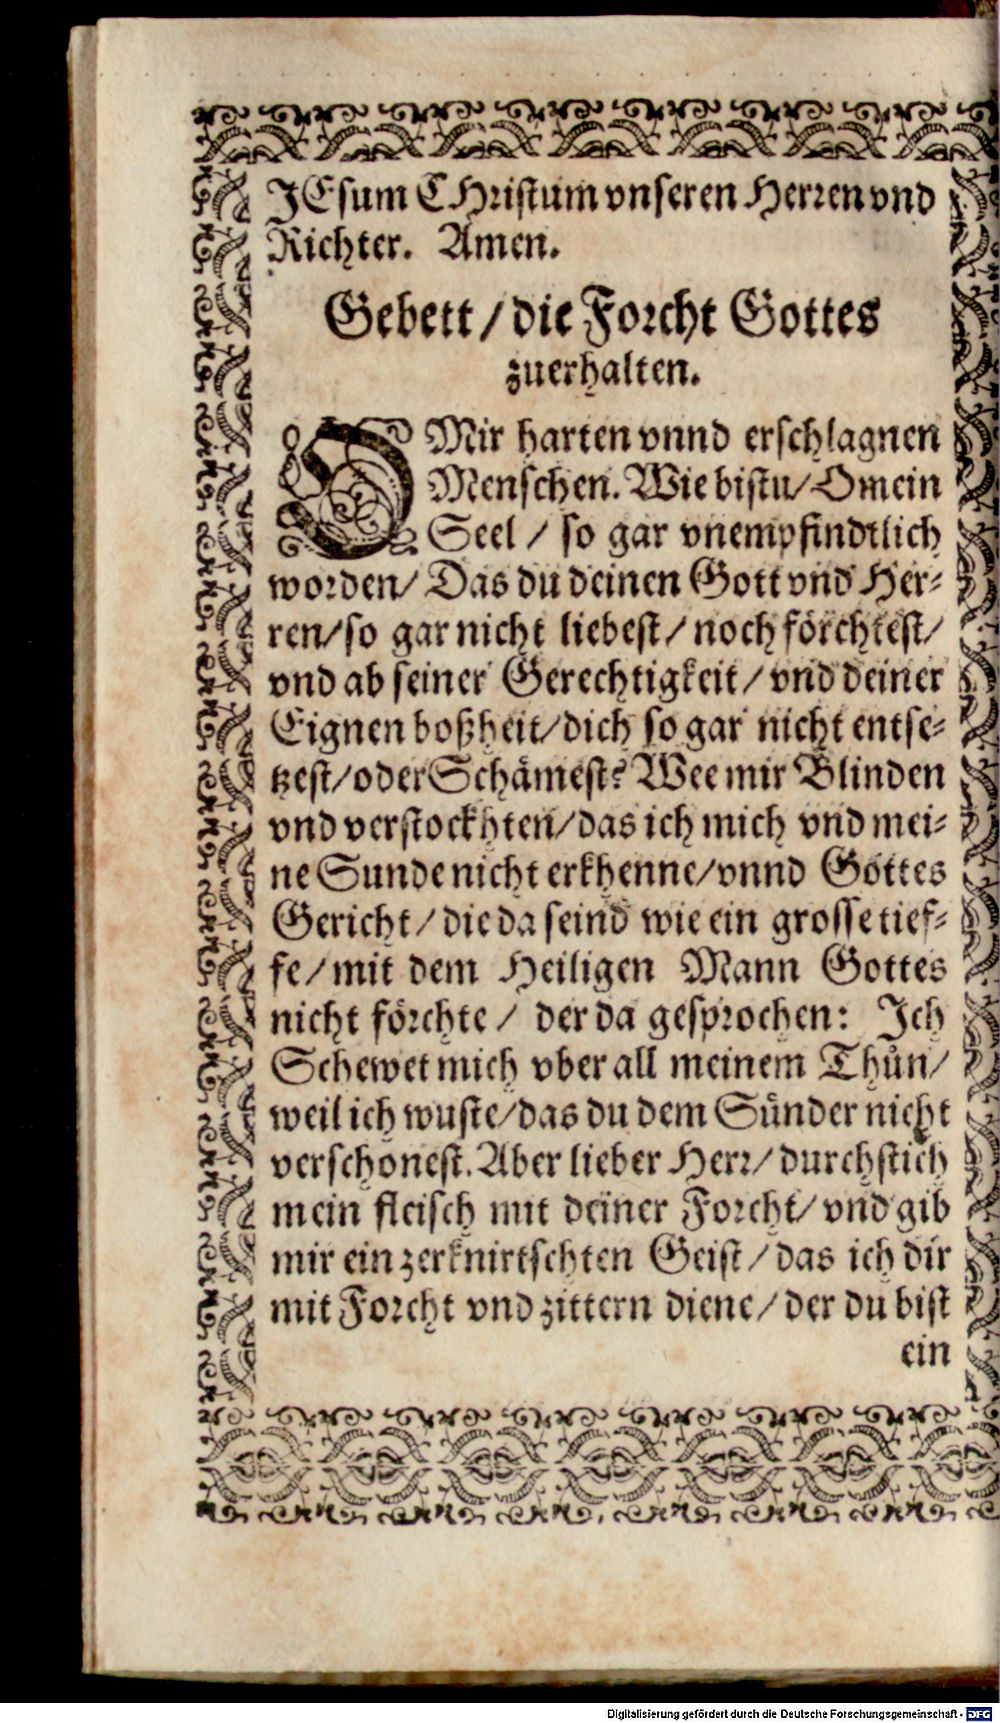 JEsum CHristum vnseren Herren vnd
Richter. Amen.
Gebett / die Forcht Gottes
zuerhalten.
O Mir harten vnnd erschlagnen
Menschen. Wie bistu / O mein
Seel / so gar vnempfindtlich
worden / Das du deinen Gott vnd Her-
ren / so gar nicht liebest / noch förchtest /
vnd ab seiner Gerechtigkeit / vnd deiner
Eignen boßheit / dich so gar nicht entse-
tzest / oder Schämest? Wee mir Blinden
vnd verstockhten / das ich mich vnd mei-
ne Sunde nicht erkhenne / vnnd Gottes
Gericht / die da seind wie ein grosse tief-
fe / mit dem Heiligen Mann Gottes
nicht förchte / der da gesprochen: Ich
Schewet mich vber all meinem Thůn /
weil ich wuste / das du dem Sünder nicht
verschonest. Aber lieber Herr / durchstich
mein fleisch mit deiner Forcht / vnd gib
mir ein zerknirtschten Geist / das ich dir
mit Forcht vnd zittern diene / der du bist
ein
Digitalisierung gefördert durch die Deutsche Forschungsgemeinschaft - DFG